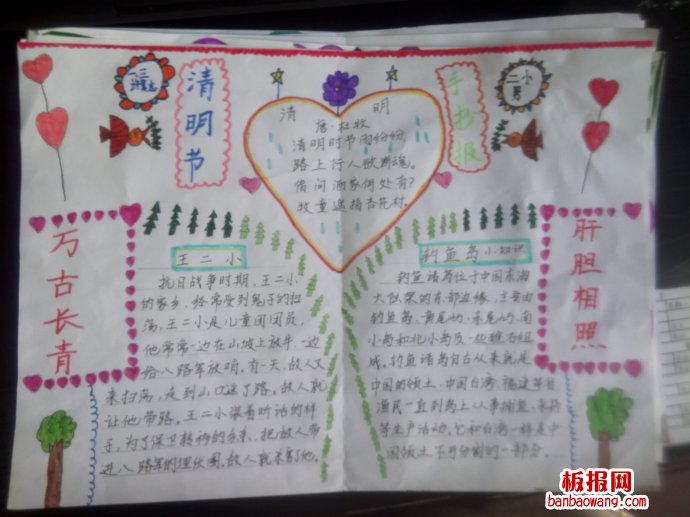 清明节
手抄报
二小
清 明
唐·杜牧
清明时节雨纷纷,
路上行人欲断魂。
借问酒家何处有?
牧童遥指杏花村。
万古长青
王二小
抗日战争时期,王二小
的家乡,经常受到鬼子的扫
荡,王二小是儿童团团员,
他常常一边在山坡上放牛,一边
给八路军放哨。有一天,敌人又
来扫荡,走到山口迷了路。敌人就
让他带路。王二小装着听话的样
子,为了保卫转移的乡亲,把敌人带
进八路军的埋伏圈。敌人就杀害了他。
钓鱼岛小知识
钓鱼诸岛位于中国东海
大陆架的东部边缘,主要由
钓鱼岛、黄尾屿、赤尾屿、南
小岛和北小岛及一些礁石组
成。钓鱼诸岛自古以来就是
中国的领土,中国台湾、福建等省
渔民一直到岛上从事捕鱼、采药
等生产活动。它和台湾一样是中
国领土不可分割的一部分。
肝胆相照
板报网
banbaowang.com